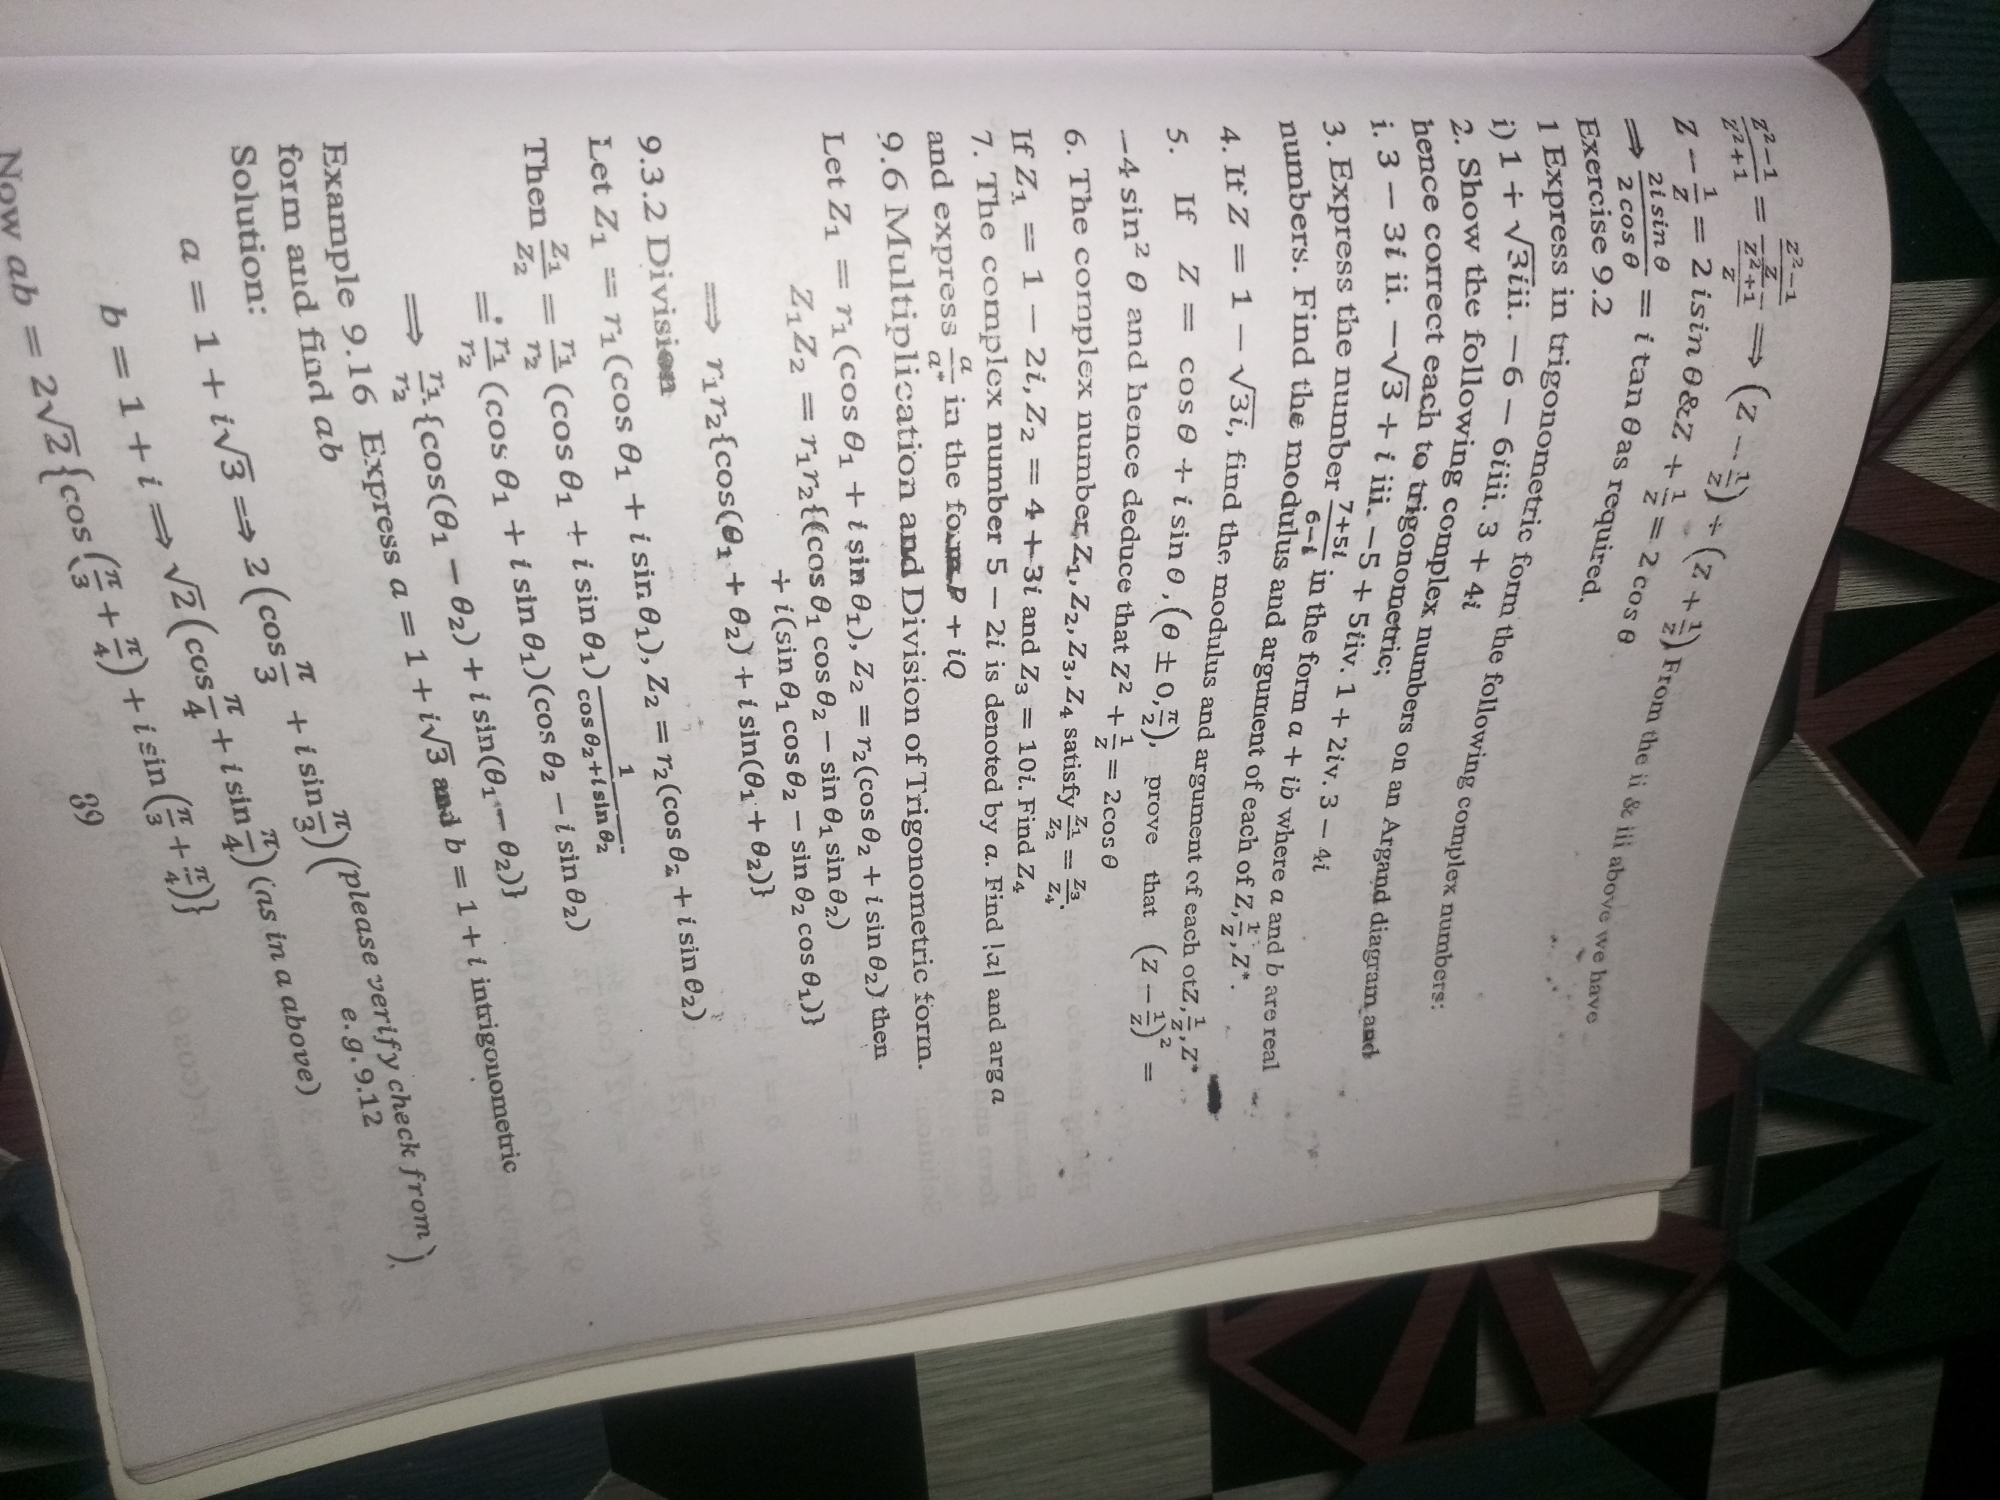 z²−1/z²+1 = (z²−1/z)/(z²+1/z) ⟹ (z − 1/z) ÷ (z + 1/z) From the ii & iii above we have
Z − 1/Z = 2 isin θ&Z + 1/Z = 2 cos θ
⟹ 2i sin θ/2 cos θ = i tan θ as required.
Exercise 9.2
1 Express in trigonometric form the following complex numbers:
i) 1 + √3iii. −6 − 6iiii. 3 + 4i
2. Show the following complex numbers on an Argand diagram and
hence correct each to trigonometric;
i. 3 − 3i ii. −√3 + i iii. −5 + 5iiv. 1 + 2iv. 3 − 4i
3. Express the number 7+5i/6−i in the form a + ib where a and b are real
numbers. Find the modulus and argument of each of Z, 1/Z, Z*.
4. If Z = 1 − √3i, find the modulus and argument of each ofZ, 1/Z, Z*
5. If Z = cos θ + i sin θ, (θ ± 0, π/2), prove that (Z − 1/Z)² =
−4 sin² θ and hence deduce that Z² + 1/Z = 2cos θ
6. The complex number, Z₁, Z₂, Z₃, Z₄ satisfy Z₁/Z₂ = Z₃/Z₄.
If Z₁ = 1 − 2i, Z₂ = 4 + 3i and Z₃ = 10i. Find Z₄
7. The complex number 5 − 2i is denoted by a. Find |a| and arg a
and express a/a* in the form P + iQ
9.6 Multiplication and Division of Trigonometric form.
Let Z₁ = r₁(cos θ₁ + i sin θ₁), Z₂ = r₂(cos θ₂ + i sin θ₂) then
Z₁Z₂ = r₁r₂{(cos θ₁ cos θ₂ − sin θ₁ sin θ₂)
+ i(sin θ₁ cos θ₂ − sin θ₂ cos θ₁)}
⟹ r₁r₂{cos(θ₁ + θ₂) + i sin(θ₁ + θ₂)}
9.3.2 Division
Let Z₁ = r₁(cos θ₁ + i sin θ₁), Z₂ = r₂(cos θ₂ + i sin θ₂)
Then Z₁/Z₂ = r₁/r₂ (cos θ₁ + i sin θ₁) 1/cos θ₂+i sin θ₂
= r₁/r₂ (cos θ₁ + i sin θ₁)(cos θ₂ − i sin θ₂)
⟹ r₁/r₂ {cos(θ₁ − θ₂) + i sin(θ₁ − θ₂)}
Example 9.16 Express a = 1 + i√3 and b = 1 + i intrigonometric
form and find ab
Solution:
a = 1 + i√3 ⟹ 2 (cos π/3 + i sin π/3) (please verify check from
e.g. 9.12)
b = 1 + i ⟹ √2 (cos π/4 + i sin π/4) (as in a above)
Now ab = 2√2 {cos (π/3 + π/4) + i sin (π/3 + π/4)}
39